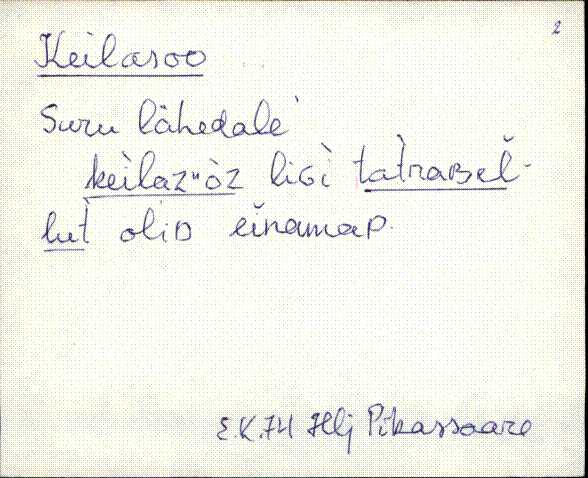 2
Keilasoo
Suru lähedalè
kèilaz"òz liGì tatraBel̆-
lut oliD eĭnamaD.
E.K.74 Hlj Pikassaare